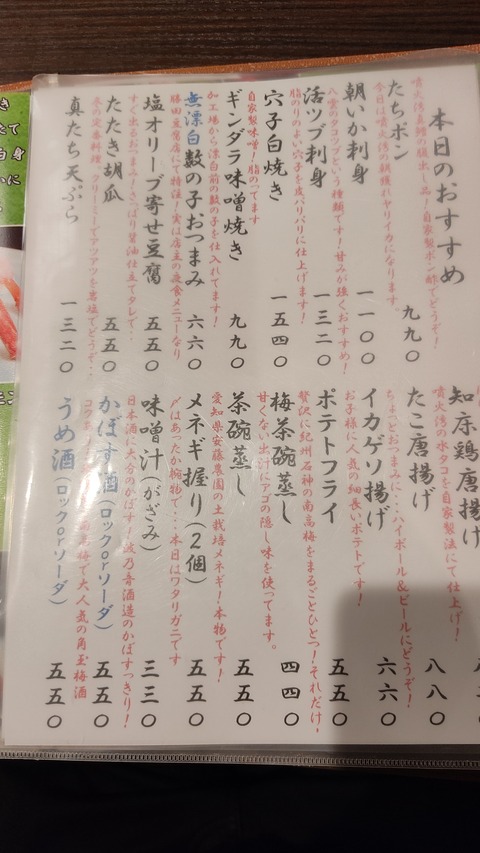 本日のおすすめ
噴火湾の鱈の
自家製ポン酢でどうぞ!
たちポン
九九〇
今日は噴火湾の朝獲れヤリイカになります
朝いか刺身
一一〇〇
八雲の
という種類です!甘みが強くおすすめ!
活ツブ刺身
一三二〇
脂のりのよい穴子を皮パリパリに仕上げます!
穴子白焼き
一五四〇
自家製味噌!脂のってます
ギンダラ味噌焼き
九九〇
加工場から漂白前の数の子を仕入れてます!
無漂白数の子おつまみ
六六〇
勝田豆腐店にて特注!実は店主の夜食メニューなり
塩オリーブ寄せ豆腐
五五〇
すぐ出るおつまみ!さっぱり醤油仕立てタレで・・
たたき胡瓜
五五〇
冬の定番料理 クリーミーでアツアツを岩塩でどうぞ・・
真たち天ぷら
一三二〇
知床鶏唐揚げ
噴火湾の水タコを自家製法にて仕上げ!
たこ唐揚げ
八八〇
ちょっとおつまみに・・ハイボール&ビールにどうぞ!
イカゲソ揚げ
六六〇
お子様に人気の細長いポテトです!
ポテトフライ
五五〇
贅沢に紀州石神の南高梅をまるごとひとつ!それだけ・
梅茶碗蒸し
四四〇
甘くない出汁にアゴの隠し味を使ってます。
茶碗蒸し
五五〇
愛知県安藤農園の土栽培メネギ!本物です!
メネギ握り(2個)
五五〇
〆はあったか椀物で・・本日はワタリガニです
味噌汁(がざみ)
三三〇
日本酒に大分のかぼす!波乃音酒造のかぼすっきり!
かぼす酒(ロックorソーダ)
五五〇
南高梅で大人気の角玉梅酒
うめ酒(ロックorソーダ)
五五〇